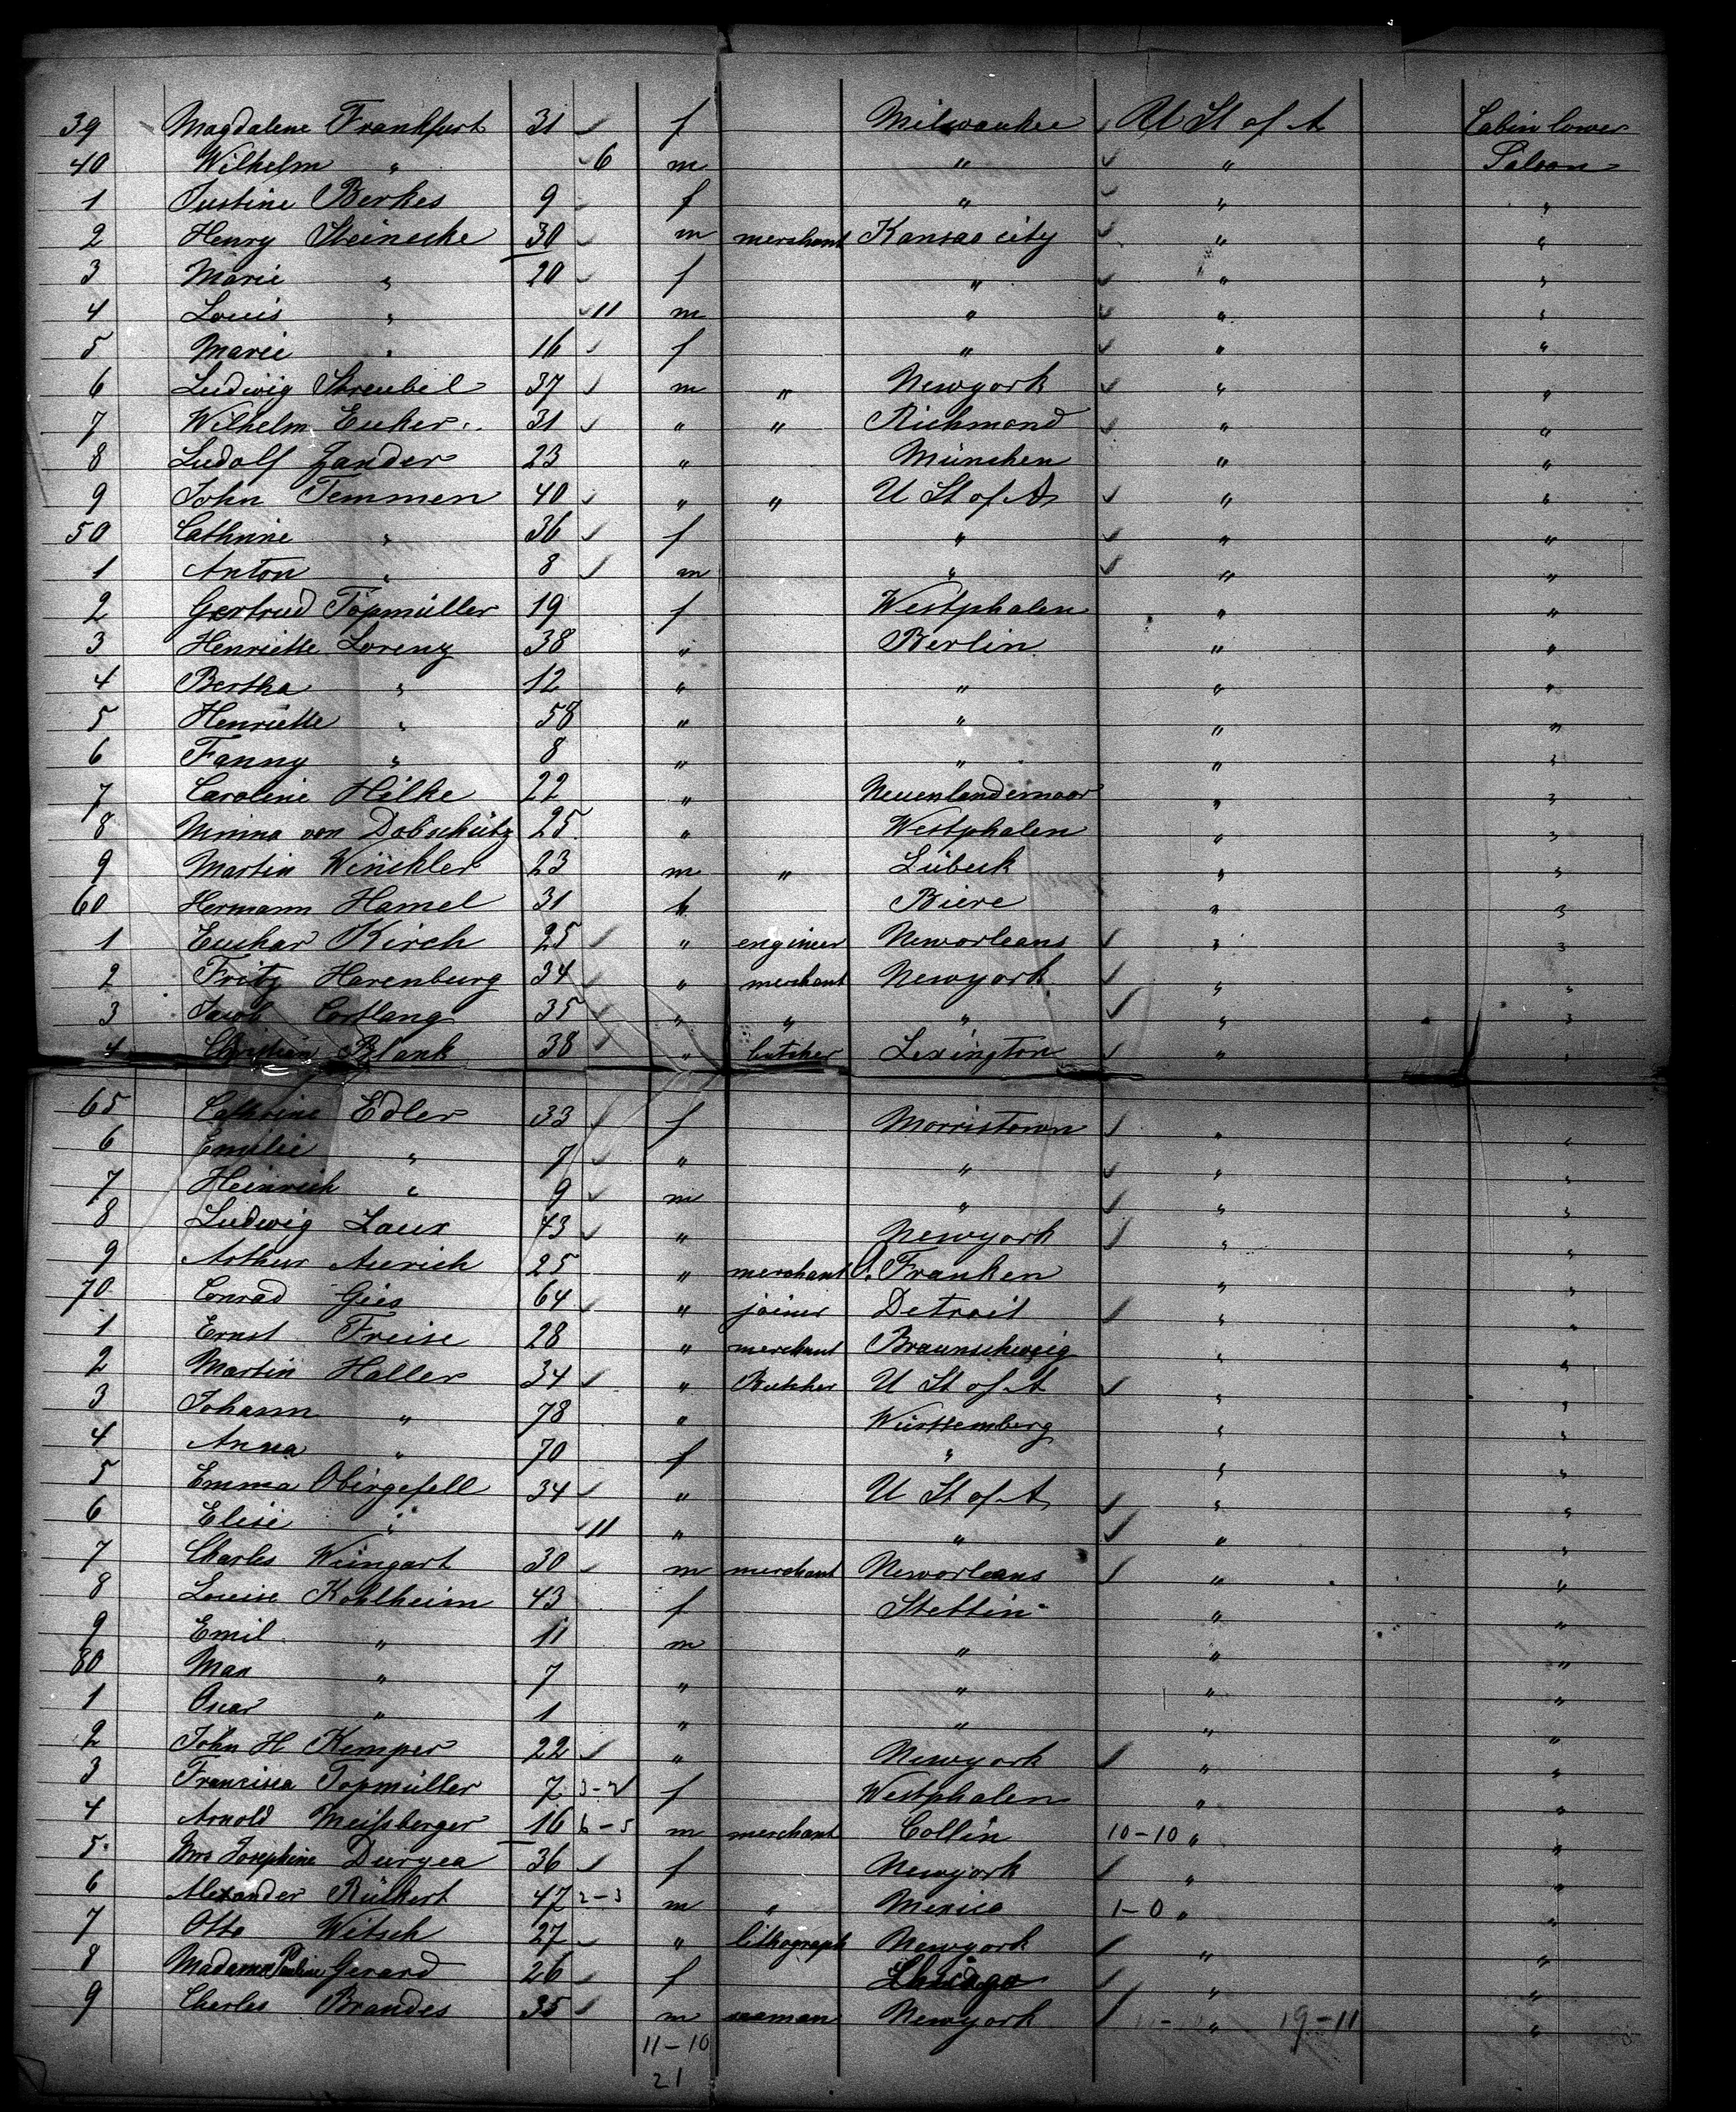 39 Magdalene Frankfurt 31 ✓ f Milwaukee ✓ U St of A Cabin lower
40 Wilhelm " ✓ 6 m " ✓ " Saloon
1 Justine Berkes 9 f " ✓ " "
2 Henry Steinecke 30 m merchant Kansas city ✓ " "
3 Marie " 20 f " ✓ " "
4 Louis " ✓ 11 m " ✓ " "
5 Marie " 16 ✓ f " ✓ " "
6 Ludwig Streubel 37 ✓ m " Newyork ✓ " "
7 Wilhelm Euker 31 ✓ " " Richmond ✓ " "
8 Ludolf Zander 23 " München " "
9 John Temmen 40 ✓ " " U St of A ✓ " "
50 Cathrine " 36 ✓ f " ✓ " "
1 Anton " 8 ✓ m " ✓ " "
2 Gertrud Topmüller 19 f Westphalen " "
3 Henriette Lorenz 38 " Berlin " "
4 Bertha " 12 " " " "
5 Henriette " 58 " " " "
6 Fanny " 8 " " " "
7 Caroline Hilke 22 " Neuenlandemoor " "
8 Minna von Dobschütz 25 " Westphalen " "
9 Martin Winckler 23 m " Lübeck " "
60 Hermann Hamel 31 " Biere " "
1 Kirch 25 ✓ " engineer Neworleans ✓ " "
2 Fritz Harenburg 34 ✓ " merchant Newyork ✓ " "
3 Jacob Cortlang 35 ✓ " " " ✓ " "
4 Christian Blank 38 ✓ " butcher Lexington ✓ " "
65 Cathrine Edler 33 ✓ f Morristown ✓ " "
6 Emilie " 7 ✓ " " ✓ " "
7 Heinrich " 9 ✓ m " ✓ " "
8 Ludwig Laux 43 ✓ " Newyork ✓ " "
9 Arthur Aurich 25 " merchant O. Franken " "
70 Conrad Gies 64 ✓ " joiner Detroit ✓ " "
1 Ernst Freise 28 " merchant Braunschweig " "
2 Martin Haller 34 ✓ " Butcher U St of A ✓ " "
3 Johann " 78 " Württemberg " "
4 Anna " 70 f " " "
5 Emma Obirgefell 34 ✓ " U St of A ✓ " "
6 Elise " ✓ 11 " " ✓ " "
7 Charles Weingart 30 ✓ m merchant Neworleans ✓ " "
8 Louise Kohlheim 43 f Stettin " "
9 Emil " 11 m " " "
80 Max " 7 " " " "
1 Oscar " 1 " " " "
2 John H Kemper 22 ✓ " Newyork ✓ " "
3 Francisca Topmüller 7 3-2 f Westphalen " "
4 Arnold Meißberger 16 6-5 m merchant Collin 10-10 " "
5 Mrs Josephine Duryea 36 ✓ f Newyork ✓ " "
6 Alexander Rückert 47 2-3 m " Mexico 1-0 " "
7 Otto Witsch 27 ✓ " lithograph Newyork ✓ " "
8 Madame Pauline Gerard 26 ✓ f Chicago ✓ " "
9 Charles Brandes 35 ✓ m seaman Newyork ✓ " 19-11 "
11-10
21